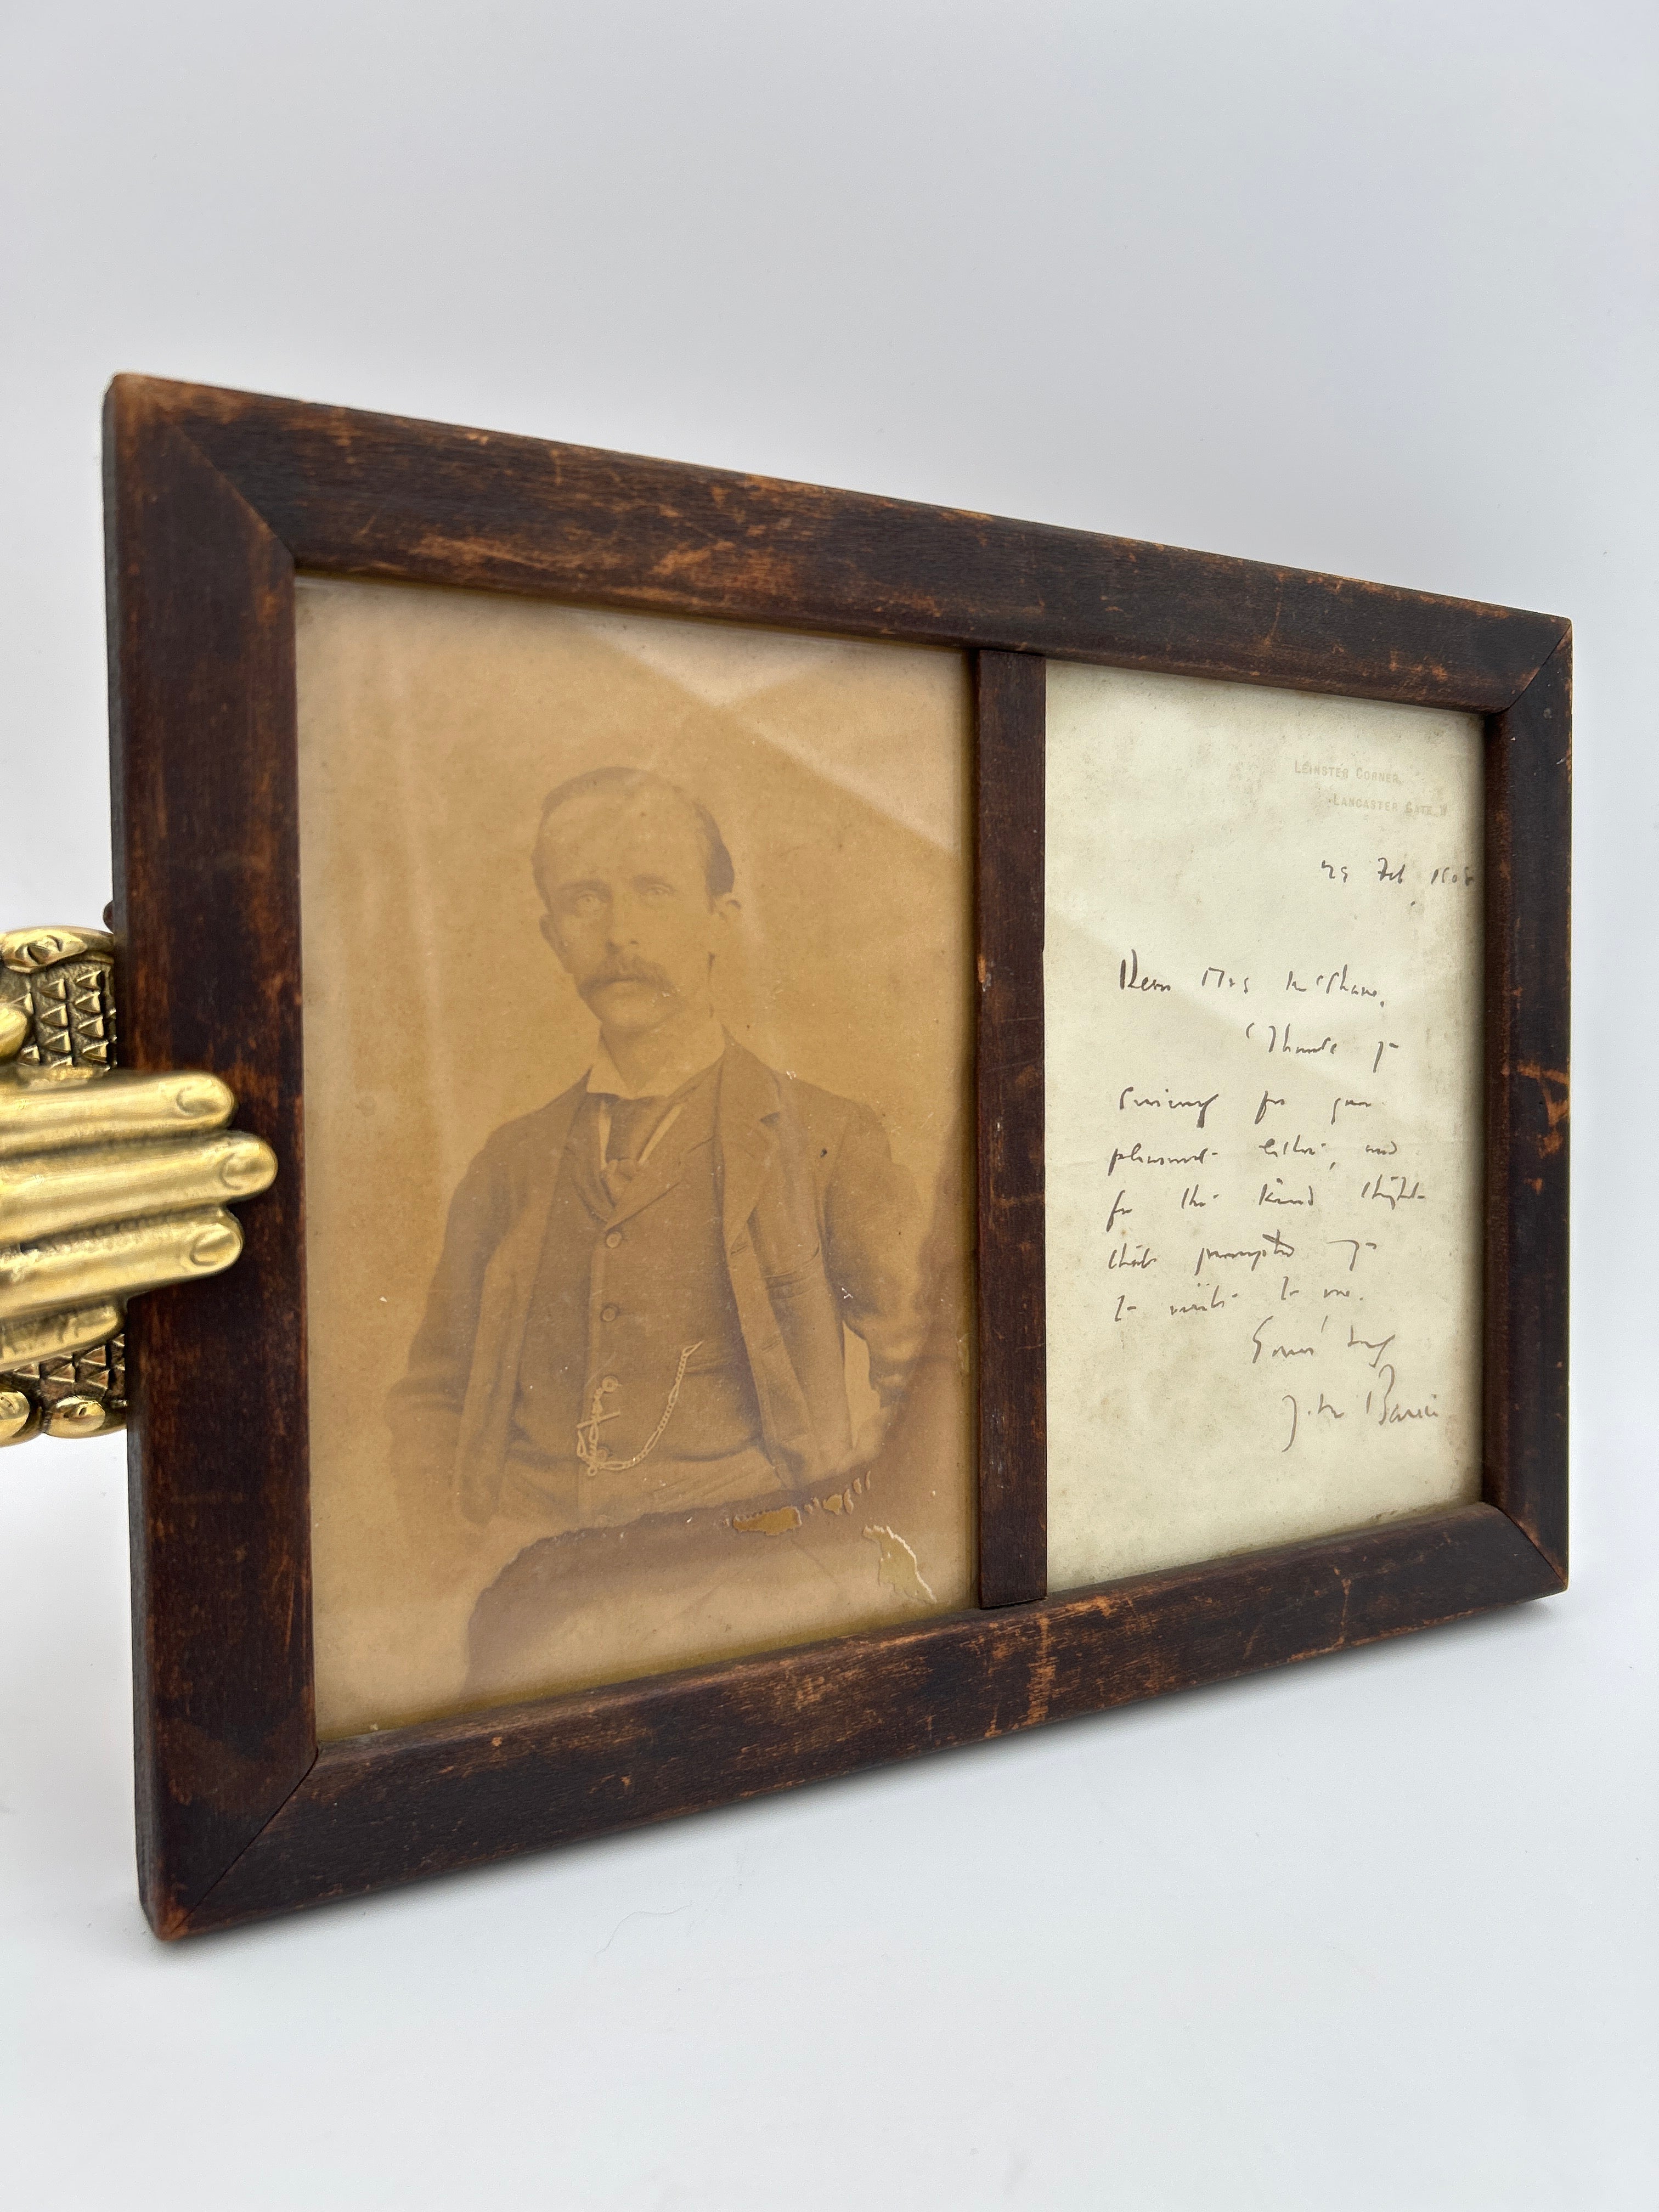 LEINSTER CORNER,
LANCASTER GATE. W
Feb 1908
Dear Mrs
Thank you
sincerely for your
pleasant letter, and
for the kind thought
that prompted you
to write to me.
Yours truly
J. M. Barrie